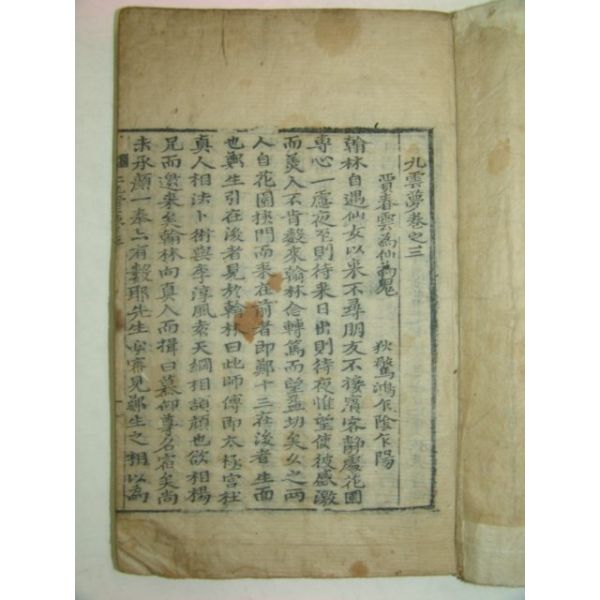 九雲夢卷之三
賈春雲爲仙爲鬼 狄驚鴻乍陰乍陽
翰林自遇仙女以來不尋朋友不接賓客靜處花園
專心一慮夜至則待來日出則待夜惟望使彼感激
而美人不肯數來翰林念轉篤而望益切矣久之兩
人自花園挾門而來在前者即鄭十三在後者生面
也鄭生引在後者見於翰林曰此師傅即太極宮杜
眞人相法卜術與李淳風袁天綱相頡頏也欲相楊
兄而邀來矣翰林向眞人而揖曰慕仰尊名宿矣尙
未承顏一奉亦有數耶先生必審見鄭生之相以爲